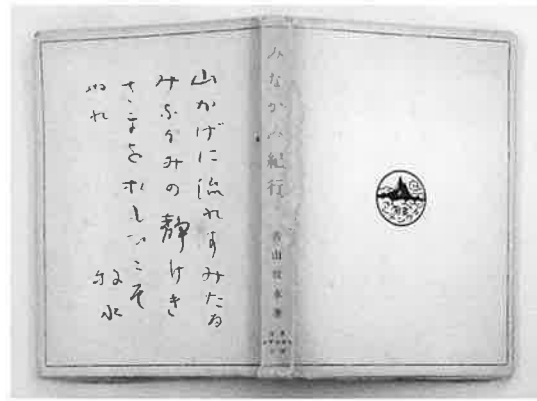 みなかみ紀行
若山牧水著
山かげに流れすみたる
みなかみの静けき
さまをおもひこそ
牧水